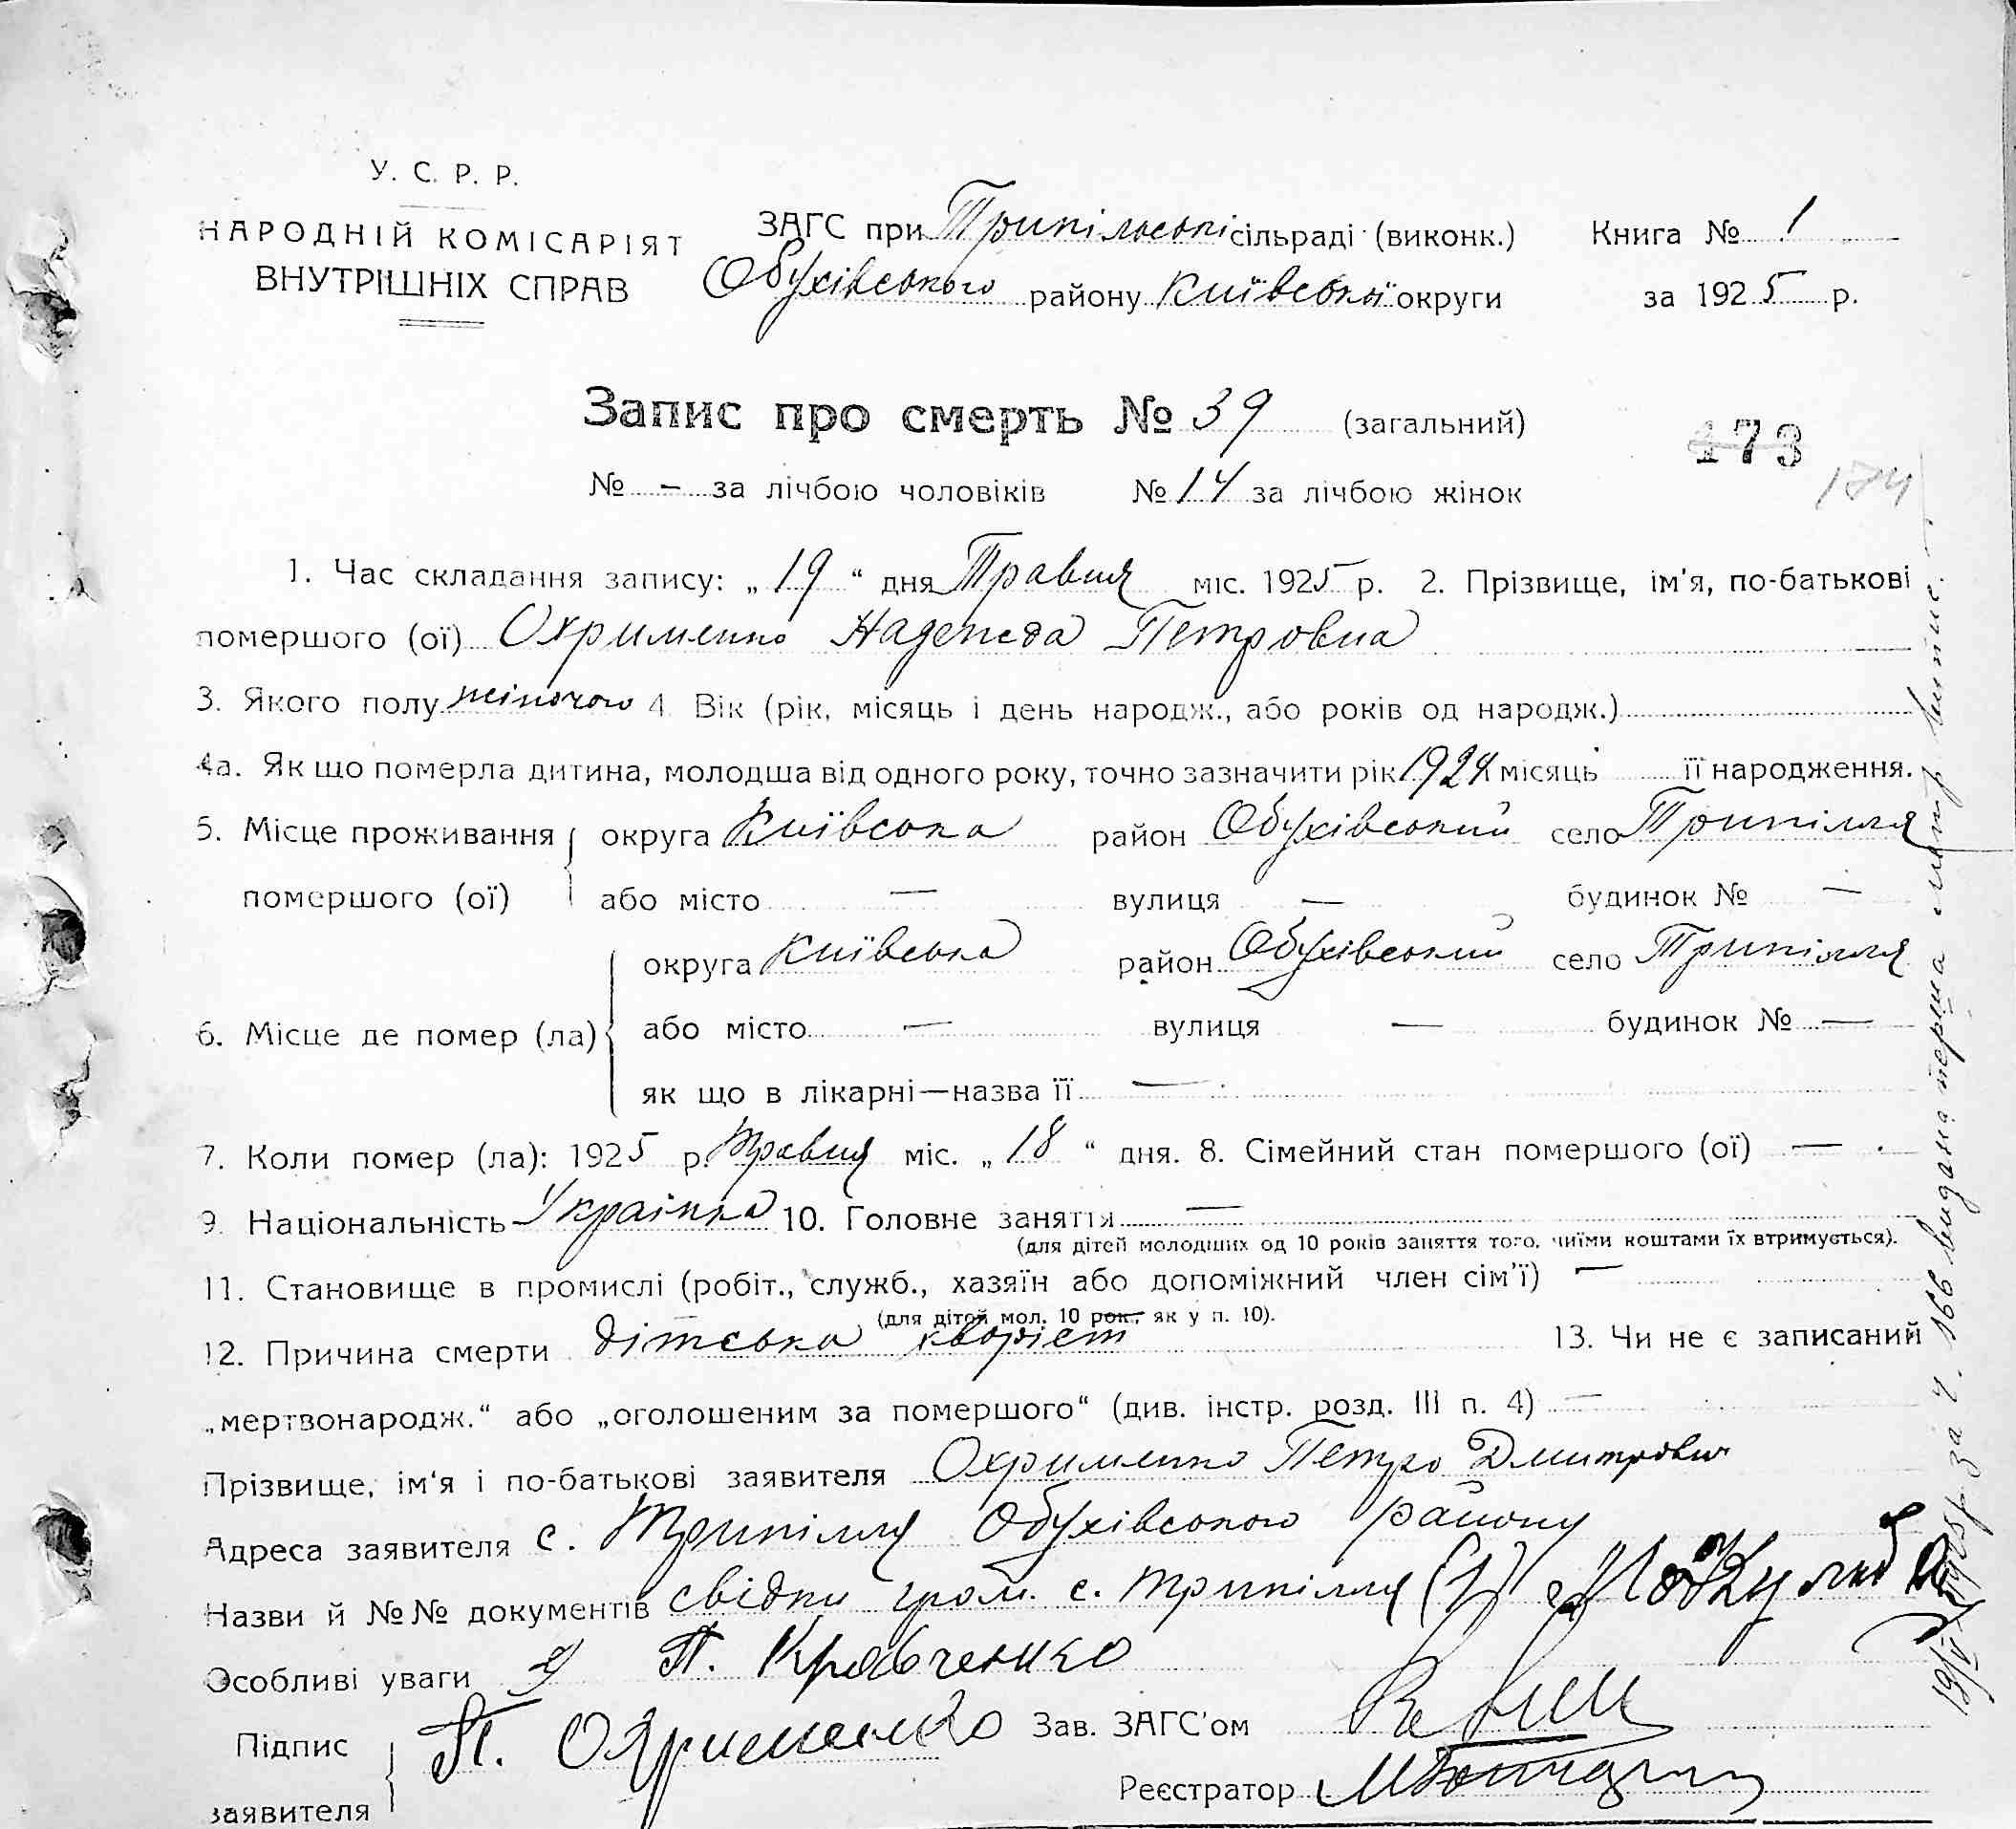 У. С. Р. Р.
НАРОДНІЙ КОМІСАРІЯТ
ВНУТРІШНІХ СПРАВ
ЗАГС при Трипільські сільраді (виконк.)
Обухівського району Київської округи
Книга № 1
за 1925 р.
Запис про смерть № 39 (загальний)
173
174
№ – за лічбою чоловіків № 14 за лічбою жінок
1. Час складання запису: „ 19 “ дня Травня міс. 1925 р. 2. Прізвище, ім'я, по-батькові
помершого (ої) Охрименко Надежда Петровна
3. Якого полу жіночого 4. Вік (рік, місяць і день народж., або років од народж.)
4а. Як що померла дитина, молодша від одного року, точно зазначити рік 1924 місяць її народження.
5. Місце проживання округа Київська район Обухівський село Трипілля
помершого (ої) або місто — вулиця — будинок № —
округа Київська район Обухівський село Трипілля
6. Місце де помер (ла) або місто — вулиця — будинок № —
як що в лікарні—назва її —
7. Коли помер (ла): 1925 р. Травня міс. „ 18 “ дня. 8. Сімейний стан помершого (ої) —
9. Національність Українка 10. Головне заняття —
(для дітей молодших од 10 років заняття того, чиїми коштами їх втримується).
11. Становище в промислі (робіт., служб., хазяїн або допоміжний член сім'ї) —
(для дітей мол. 10 рок., як у п. 10).
12. Причина смерти дітська кворість 13. Чи не є записаний
„мертвонародж.“ або „оголошеним за помершого“ (див. інстр. розд. III п. 4) —
Прізвище, ім'я і по-батькові заявителя Охрименко Петро Дмитрович
Адреса заявителя с. Трипілля Обухівського району
Назви й №№ документів свідки гром. с. Трипілля (1)
Особливі уваги 2) П. Кравченко
Підпис заявителя П. Охрименко Зав. ЗАГС'ом
Реєстратор
за ч. 166 видана перша метр випис.